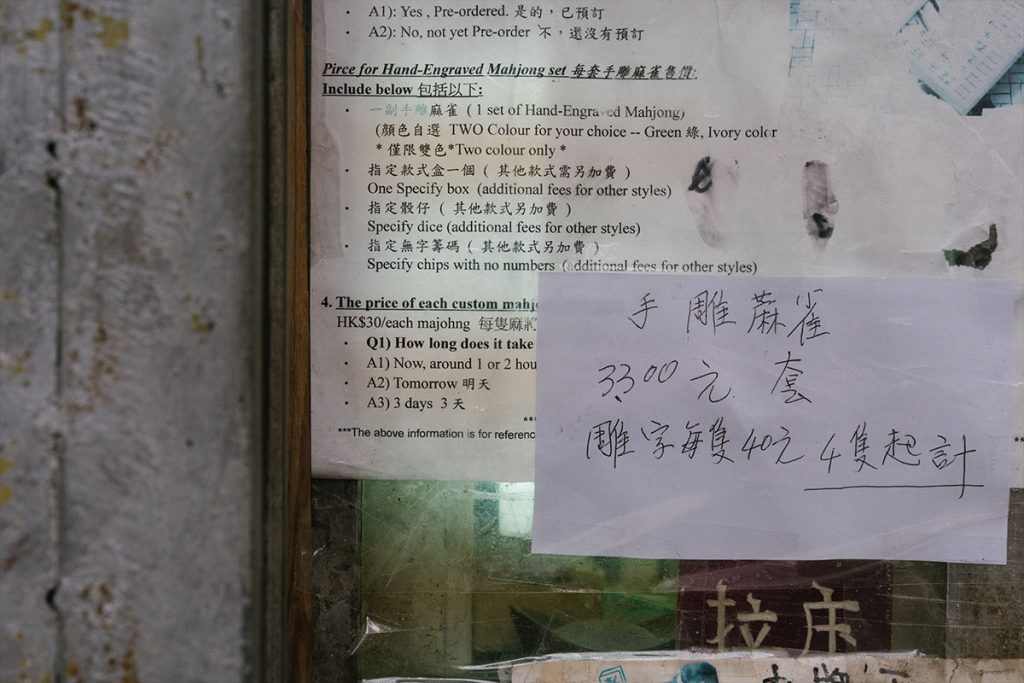 • A1): Yes , Pre-ordered. 是的，已預訂
• A2): No, not yet Pre-order 不，還沒有預訂
Pirce for Hand-Engraved Mahjong set 每套手雕麻雀售價:
Include below 包括以下:
• 一副手雕麻雀 ( 1 set of Hand-Engraved Mahjong)
(顏色自選 TWO Colour for your choice -- Green 綠, Ivory color
* 僅限雙色*Two colour only *
• 指定款式盒一個 ( 其他款式需另加費 )
One Specify box (additional fees for other styles)
• 指定骰仔 ( 其他款式另加費 )
Specify dice (additional fees for other styles)
• 指定無字籌碼 ( 其他款式另加費 )
Specify chips with no numbers (additional fees for other styles)
4. The price of each custom mahj
HK$30/each majohng 每隻麻將
• Q1) How long does it take
• A1) Now, around 1 or 2 hou
• A2) Tomorrow 明天
• A3) 3 days 3 天
***The above information is for referenc
手雕蔴雀
3300元 套
雕字每隻40元 4隻起計
拉床